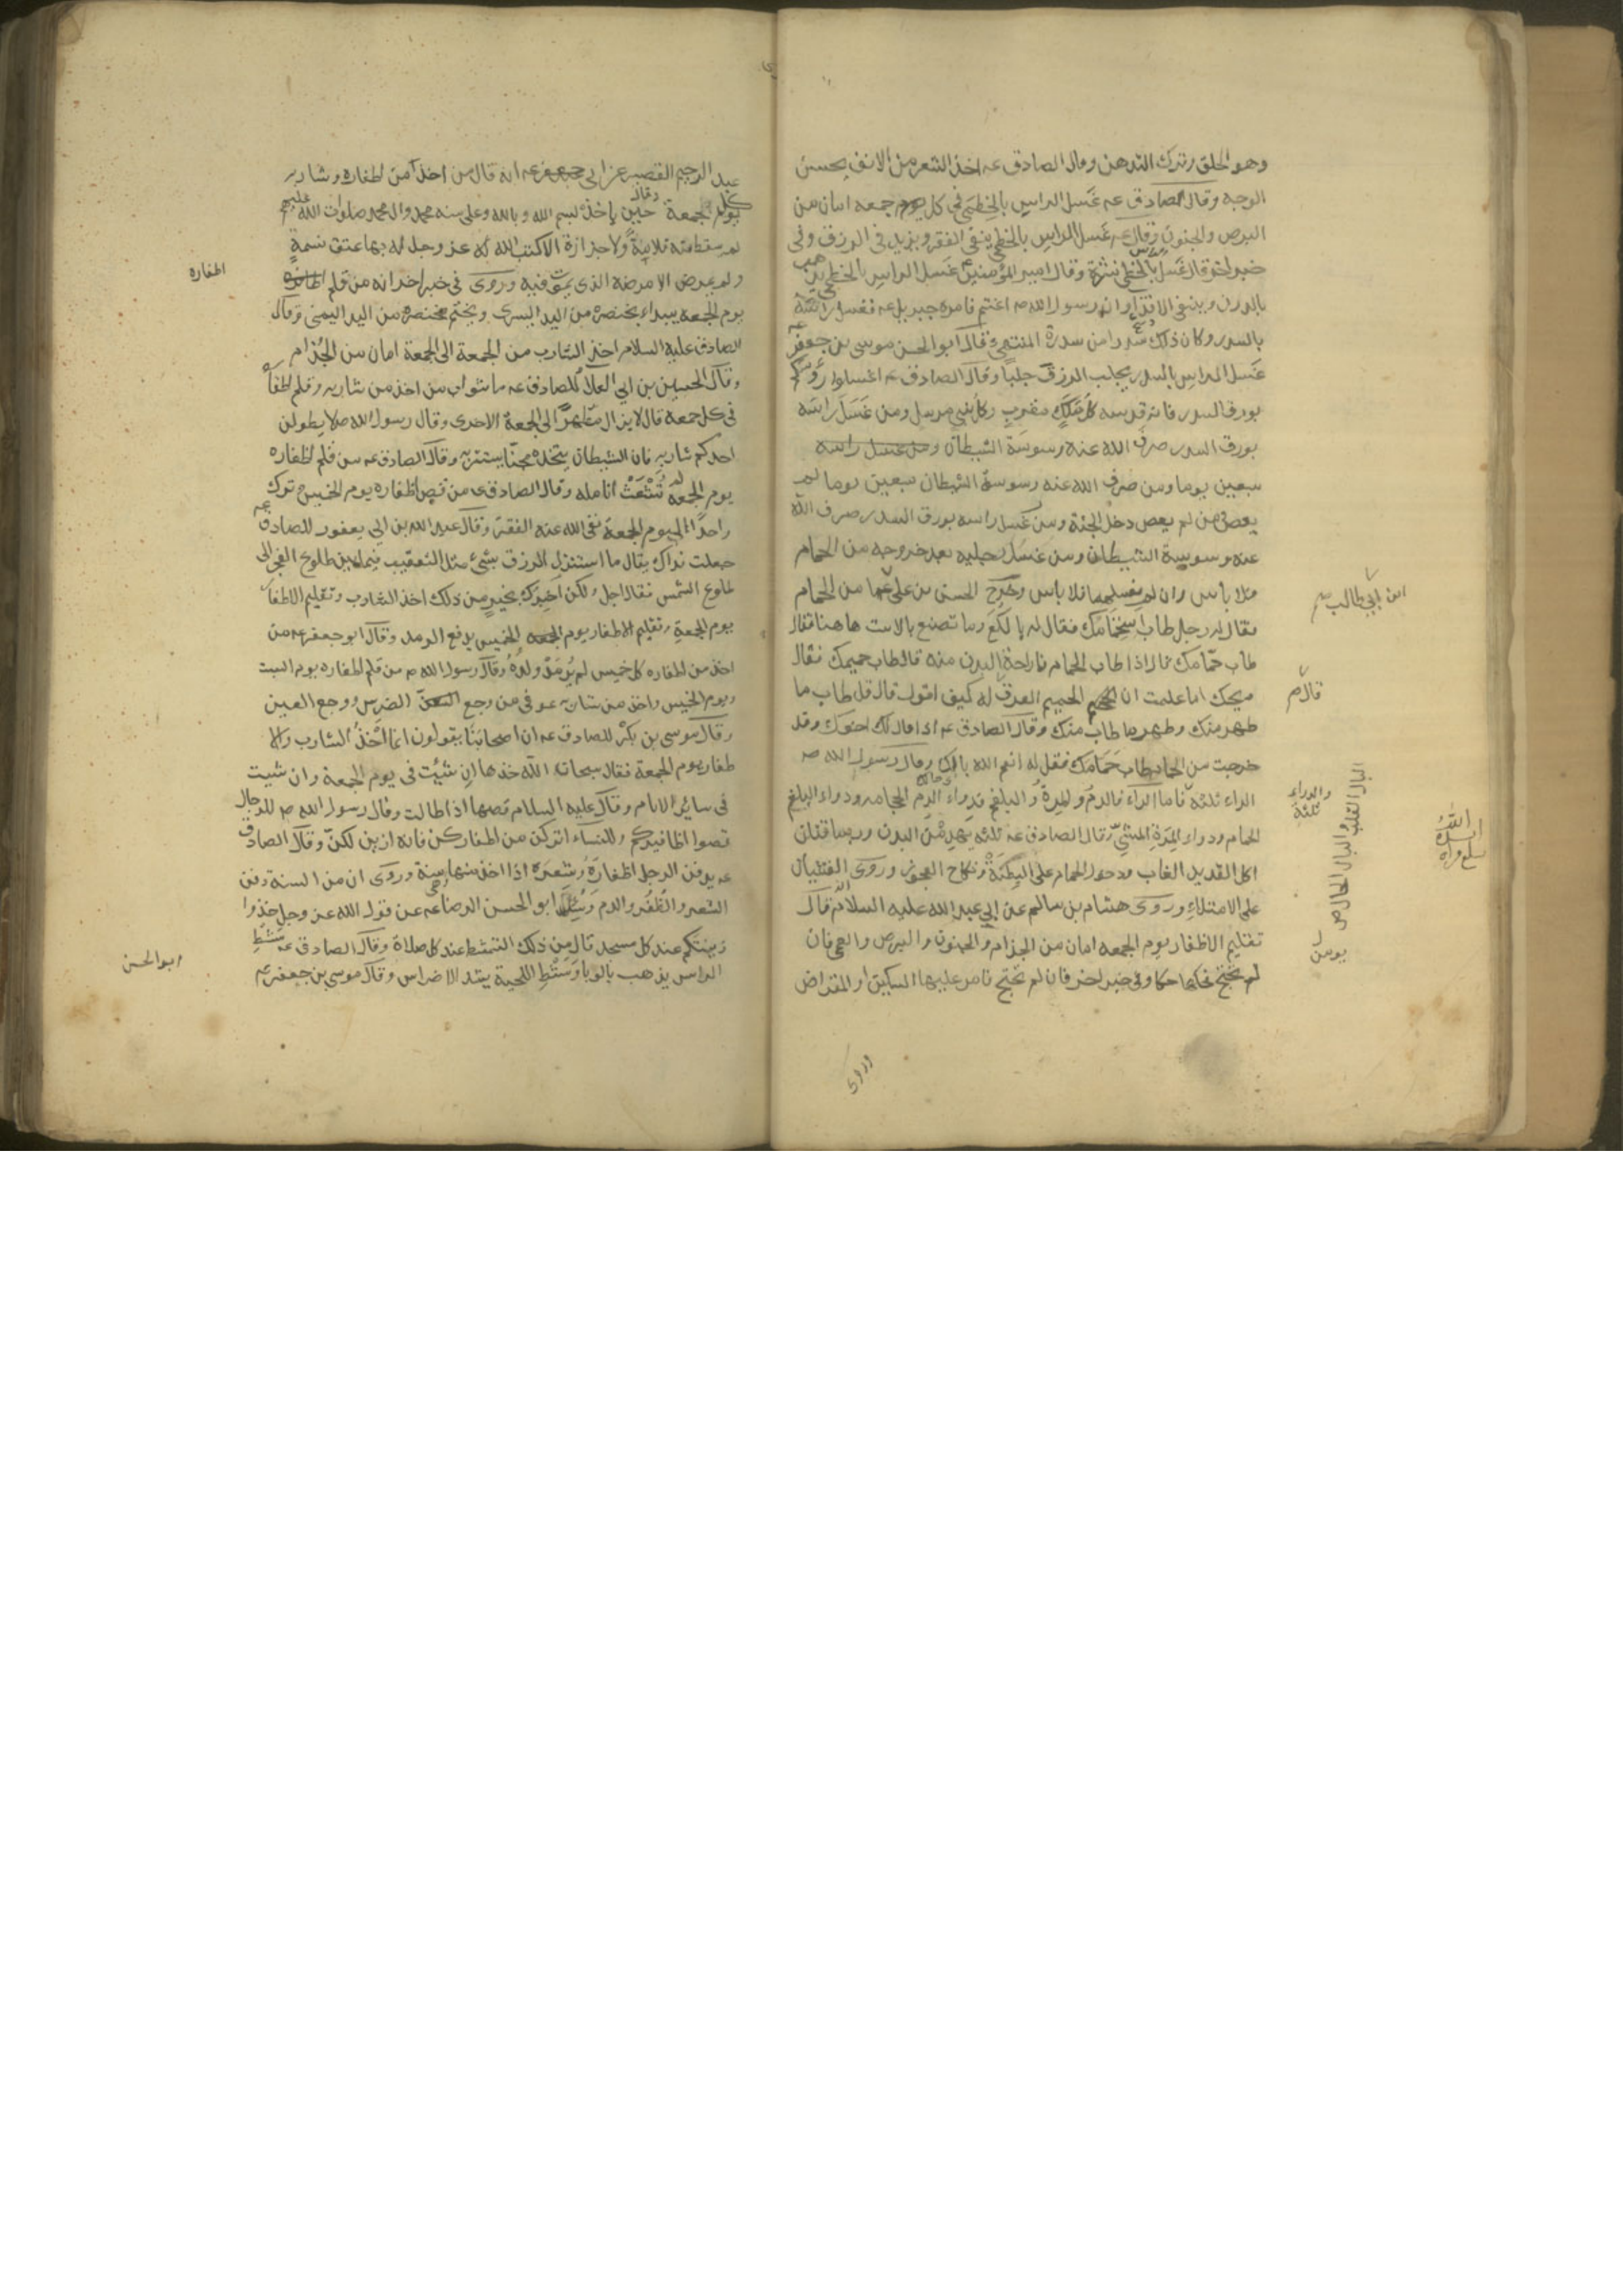 وهو الحلق وترك التدهن وقال الصادق عه اخذ الشعر من الانف يحسن
الوجه وقال الصادق عه غَسل الراس بالخِطمي في كل يوم جمعه امان من
البرص والجنون وقال عه غَسل الراس بالخطمي ينفي الفقر ويزيد في الرزق وفي
خبر اخر قال غَسل الراس بالخطمي نشرة وقال امير المؤمنين ع غَسل الراس بالخطمي يذهب
بالدرن وينفي الاقذاء وان رسول الله ص اغتم فامره جبرئيل عه فغسل راسَه
بالسدر وكان ذلك سدرا من سدرة المنتهى وقال ابو الحسن موسى بن جعفر عه
غَسل الراس بالسدر يجلب الرزق جلباً وقال الصادق ع اغسلوا رؤسكم
بورق السدر فانه قدسه كل مَلَكٍ مقربٍ وكل نبي مرسل ومن غَسَلَ راسَه
بورق السدر صرف الله عنه وسوسَة الشيطان ومن غسل راسه
سبعين يوما ومن صُرف الله عنه وسوسة الشيطان سبعين يوما لم
يعص ومن لم يعص دخل الجنة ومن غسل راسه بورق السدر صرف الله
عنه وسوسة الشيطان ومن غسَل رجليه بعد خروجه من الحمام
فلا باس وان لم يغسلهما فلا باس وخرج الحسن بن علي ع من الحمام
ابن ابي طالب ع
فقال له رجل طاب استحمامك فقال له يا لكع وما تصنع بالاست هاهنا فقال
طاب حمّامك قال اذا طاب الحمام فما راحة البدن منه قال طاب حميمك فقال
ويحك اما علمت ان الحميم العرق قال له كيف اقول قال قل طاب ما
قال ع
طهر منك وطهر ما طاب منك وقال الصادق ع اذا قال لك اخوك وقد
خرجت من الحمام طاب حَمّامك فقل له انعم الله بالك وقال رسول الله ص
الداء ثلثة فاما الداء فالدمُ والمِرةُ والبلغم فدواء الدم الحجامه ودواء البلغم
والدواء ثلثة
البال القلب والبال الحال ص
الحمام ودواء المِرَةِ المشيّ وقال الصادق عه ثلثه يهدمن البدن وربما قتلن
اكل القديد الغاب ودخول الحمام على البِطنَةِ ونكاح العجوز وروى الغشيان
على الامتلاءِ وروى هشام بن سالم عن ابي عبد الله عليه السلام انه قال
تقليم الاظفار يوم الجمعه امان من الجذام والجنون والبرص والعمى فان
يومن
لم تحتج فحكها حكا وفي خبر اخر فان لم تحتج فامر عليها السكين او المقراض
وروى
عبد الرحيم القصير عن ابي جعفر عه انه قال من اخذ من اظفاره وشاربه
كل يوم جمعة وقال حين ياخذ بسم الله وبالله وعلى سنه محمد وال محمد صلوات الله عليهم
لم يسقط منه قلامةٌ ولا جزازة الا كتب الله له عز وجل له بها عتق نسمةٍ
ولم يمرض الا مرضه الذي يموت فيه وروى في خبر اخر انه من قلم اظفاره
اظفاره
يوم الجمعه يبداء بخنصره من اليد اليسرى ويختم بخنصره من اليد اليمنى وقال
الصادق عليه السلام اخذ الشارب من الجمعة الى الجمعة امان من الجُذام
وقال الحسين بن ابي العلاء للصادق عه ما ثواب من اخذ من شاربه وقلم اظفاره
في كل جمعه قال لا يزال مطهراً الى الجمعة الاخرى وقال رسول الله ص لا يطولن
احدكم شاربه فان الشيطان يتخذه مجنّاً يستتر به وقال الصادق عه من قلم اظفاره
يوم الجمعة لم تَشعَث انامله وقال الصادق ع من قص اظفاره يوم الخميس وترك
واحداً ليوم الجمعة نفى الله عنه الفقرَ وقال عبد الله بن ابي يعفور للصادق عه
جعلت فداك يقال ما استنزل الرزق بشئ مثل التعقيب فيما بين طلوع الفجر الى
طلوع الشمس فقال اجل ولكن اخبرك بخيرٍ من ذلك اخذ الشارب وتقليم الاظفار
يوم الجمعةِ وتقليم الاظفار يوم الخميس يدفع الرمد وقال ابو جعفر عه من
اخذ من اظفاره كل خميس لم يُرمَد ولدُهُ وقال رسول الله ص من قلم اظفاره يوم السبت
ويوم الخميس واخذ من شاربه عوفي من وجع الضرسِ ووجع العين
وقال موسى بن بكرٍ للصادق عه ان اصحابنَا يقولون انما اَخْذُ الشارب والا
ظفار يوم الجمعة فقال سبحان الله خذها ان شِئتَ في يوم الجمعة وان شيت
في سائر الايام وقال عليه السلام قصها اذا طالت وقال رسول الله ص للرجال
قصوا اظافيركم وللنساء اتركن من اظفاركن فانه ازين لكنّ وقال الصادق
عه يدفن الرجل اظفارَهُ وشعرَه اذا اخذ منها سنة وروى ان من السنة دفن
الشعر والظُفُر والدم وسُئِلَ ابو الحسن الرضا عه عن قول الله عز وجل خذوا
زينتكم عند كل مسجد قال من ذلك التمشط عند كل صلاة وقال الصادق عه مَشطِ
ابو الحسن
الراس يذهب بالوبا ومَشْطِ اللحية يشد الاضراس وقال موسى بن جعفر ع